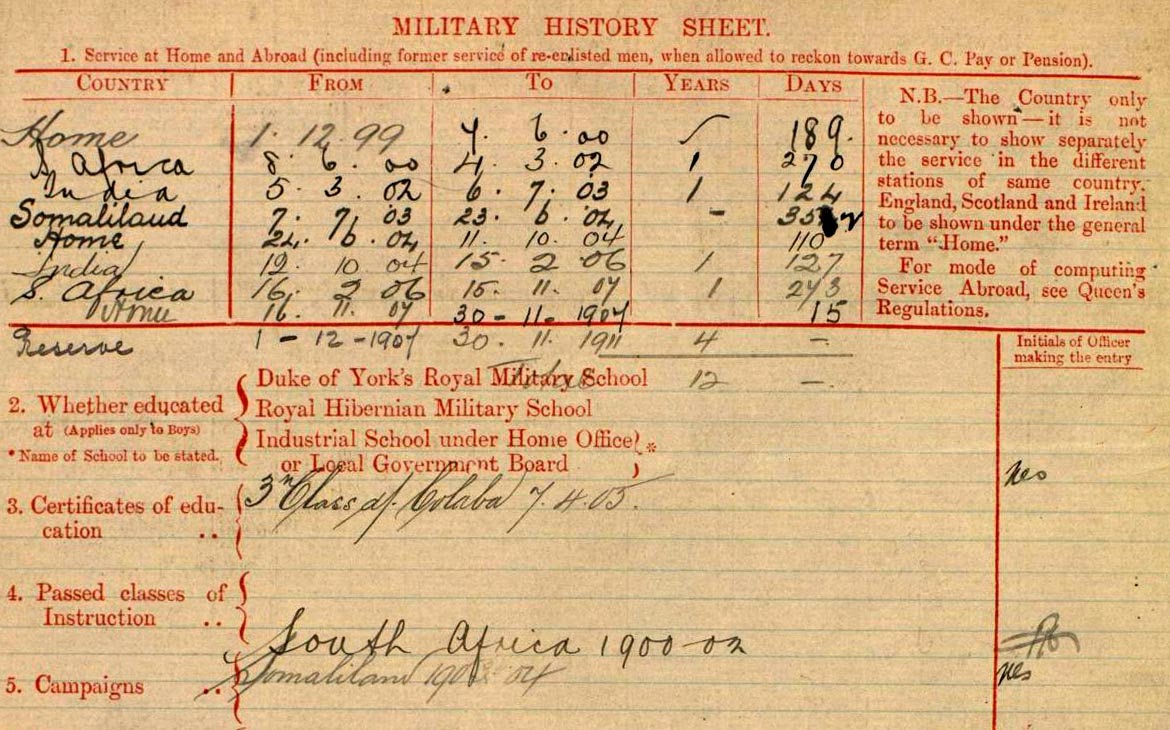 MILITARY HISTORY SHEET.
1. Service at Home and Abroad (including former service of re-enlisted men, when allowed to reckon towards G. C. Pay or Pension).
COUNTRY FROM TO YEARS DAYS
Home 1. 12. 99 7. 6. 00 189.
S Africa 8. 6. 00 4. 3. 02 1 270
India 5. 3. 02 6. 7. 03 1 124
Somaliland 7. 7. 03 23. 6. 04 -
Home 24. 6. 04 11. 10. 04 110
India 12. 10 04 15. 2 06 1 127
S. Africa 16. 2 06 15. 11. 07 1 273
Home 16. 11. 07 30 - 11 - 1907 15
N.B.—The Country only
to be shown—it is not
necessary to show separately
the service in the different
stations of same country.
England, Scotland and Ireland
to be shown under the general
term "Home."
For mode of computing
Service Abroad, see Queen's
Regulations.
Reserve 1 - 12 - 1907 30. 11. 1911 4 -
Initials of Officer
making the entry
Total 12 -
2. Whether educated
at (Applies only to Boys)
*Name of School to be stated.
Duke of York's Royal Military School
Royal Hibernian Military School
Industrial School under Home Office
or Local Government Board *
3. Certificates of edu-
cation ..
3 Class Colaba 7. 4. 05.
4. Passed classes of
Instruction ..
5. Campaigns ..
South Africa 1900-02
Somaliland 04